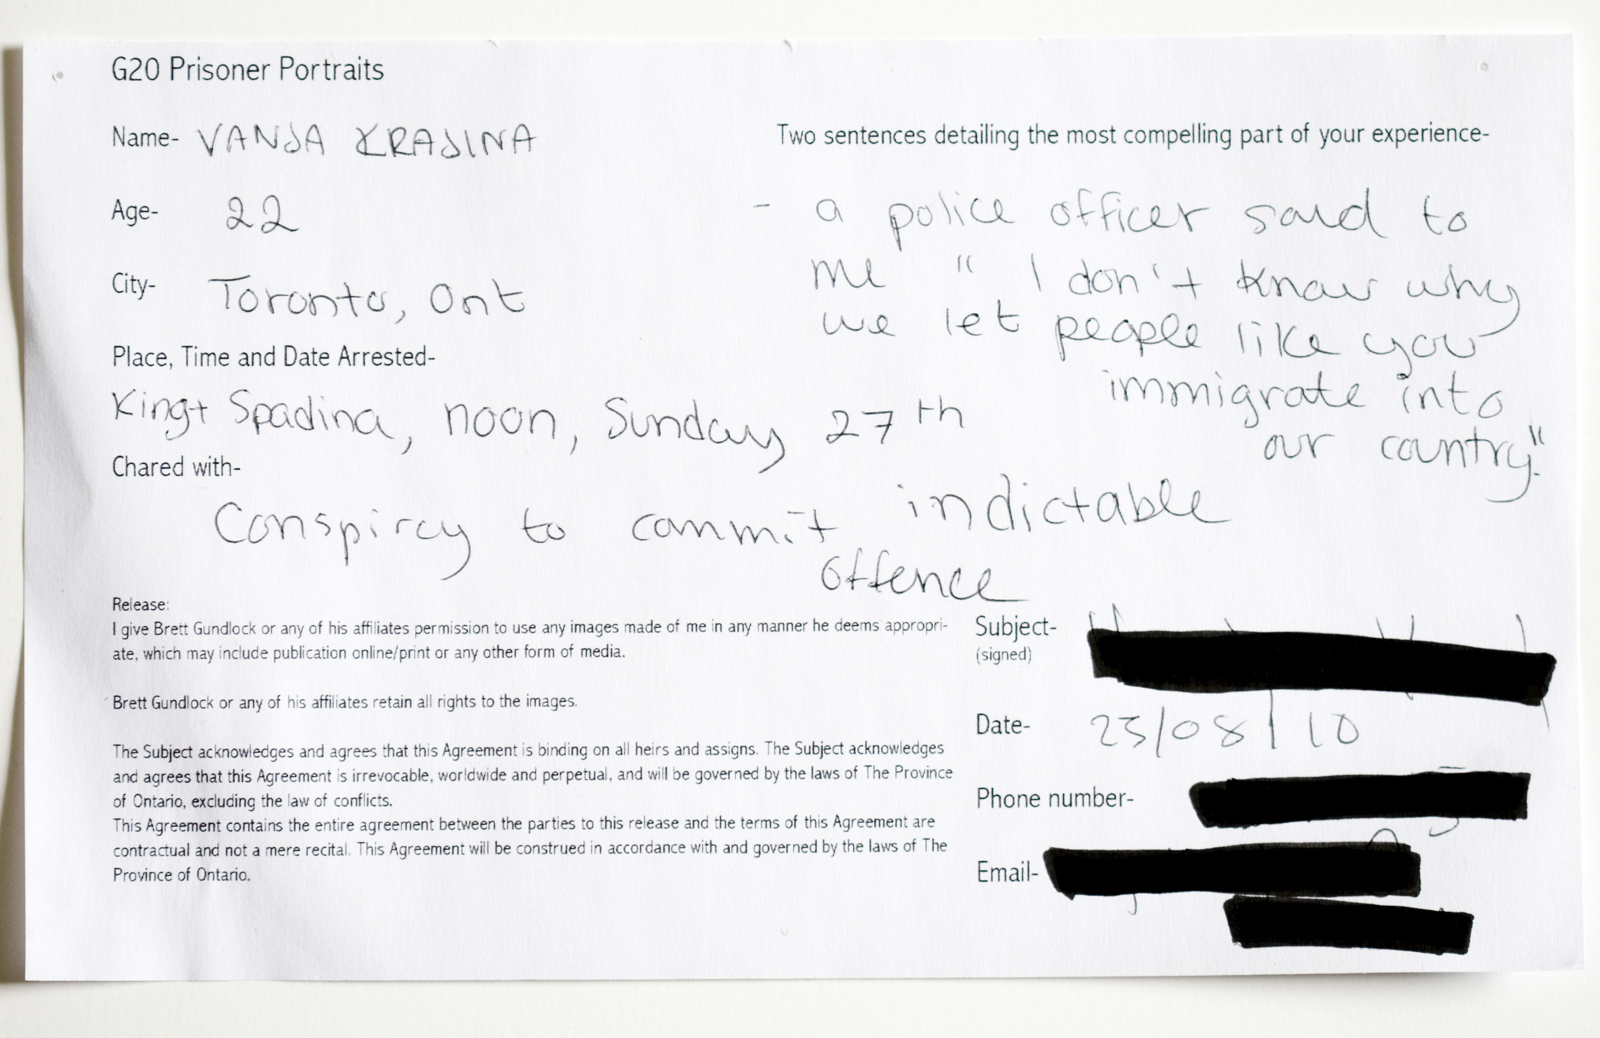 G20 Prisoner Portraits
Name- VANJA KRAJINA
Age- 22
City- Toronto, Ont
Place, Time and Date Arrested-
King+ Spadina, noon, Sunday 27th
Chared with-
Conspircy to commit indictable
offence
Two sentences detailing the most compelling part of your experience-
- a police officer said to
me " I don't know why
we let people like you
immigrate into
our country."
Release:
I give Brett Gundlock or any of his affiliates permission to use any images made of me in any manner he deems appropri-
ate, which may include publication online/print or any other form of media.
Brett Gundlock or any of his affiliates retain all rights to the images.
The Subject acknowledges and agrees that this Agreement is binding on all heirs and assigns. The Subject acknowledges
and agrees that this Agreement is irrevocable, worldwide and perpetual, and will be governed by the laws of The Province
of Ontario, excluding the law of conflicts.
This Agreement contains the entire agreement between the parties to this release and the terms of this Agreement are
contractual and not a mere recital. This Agreement will be construed in accordance with and governed by the laws of The
Province of Ontario.
Subject-
(signed)
Date- 23/08/10
Phone number-
Email-